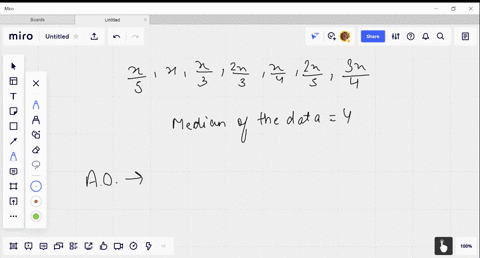 Miro
Boards Untitled
miro Untitled Share
x/5, x, x/3, 2x/3, x/4, 2x/5, 3x/4
Median of the data = 4
A.O. →
100%